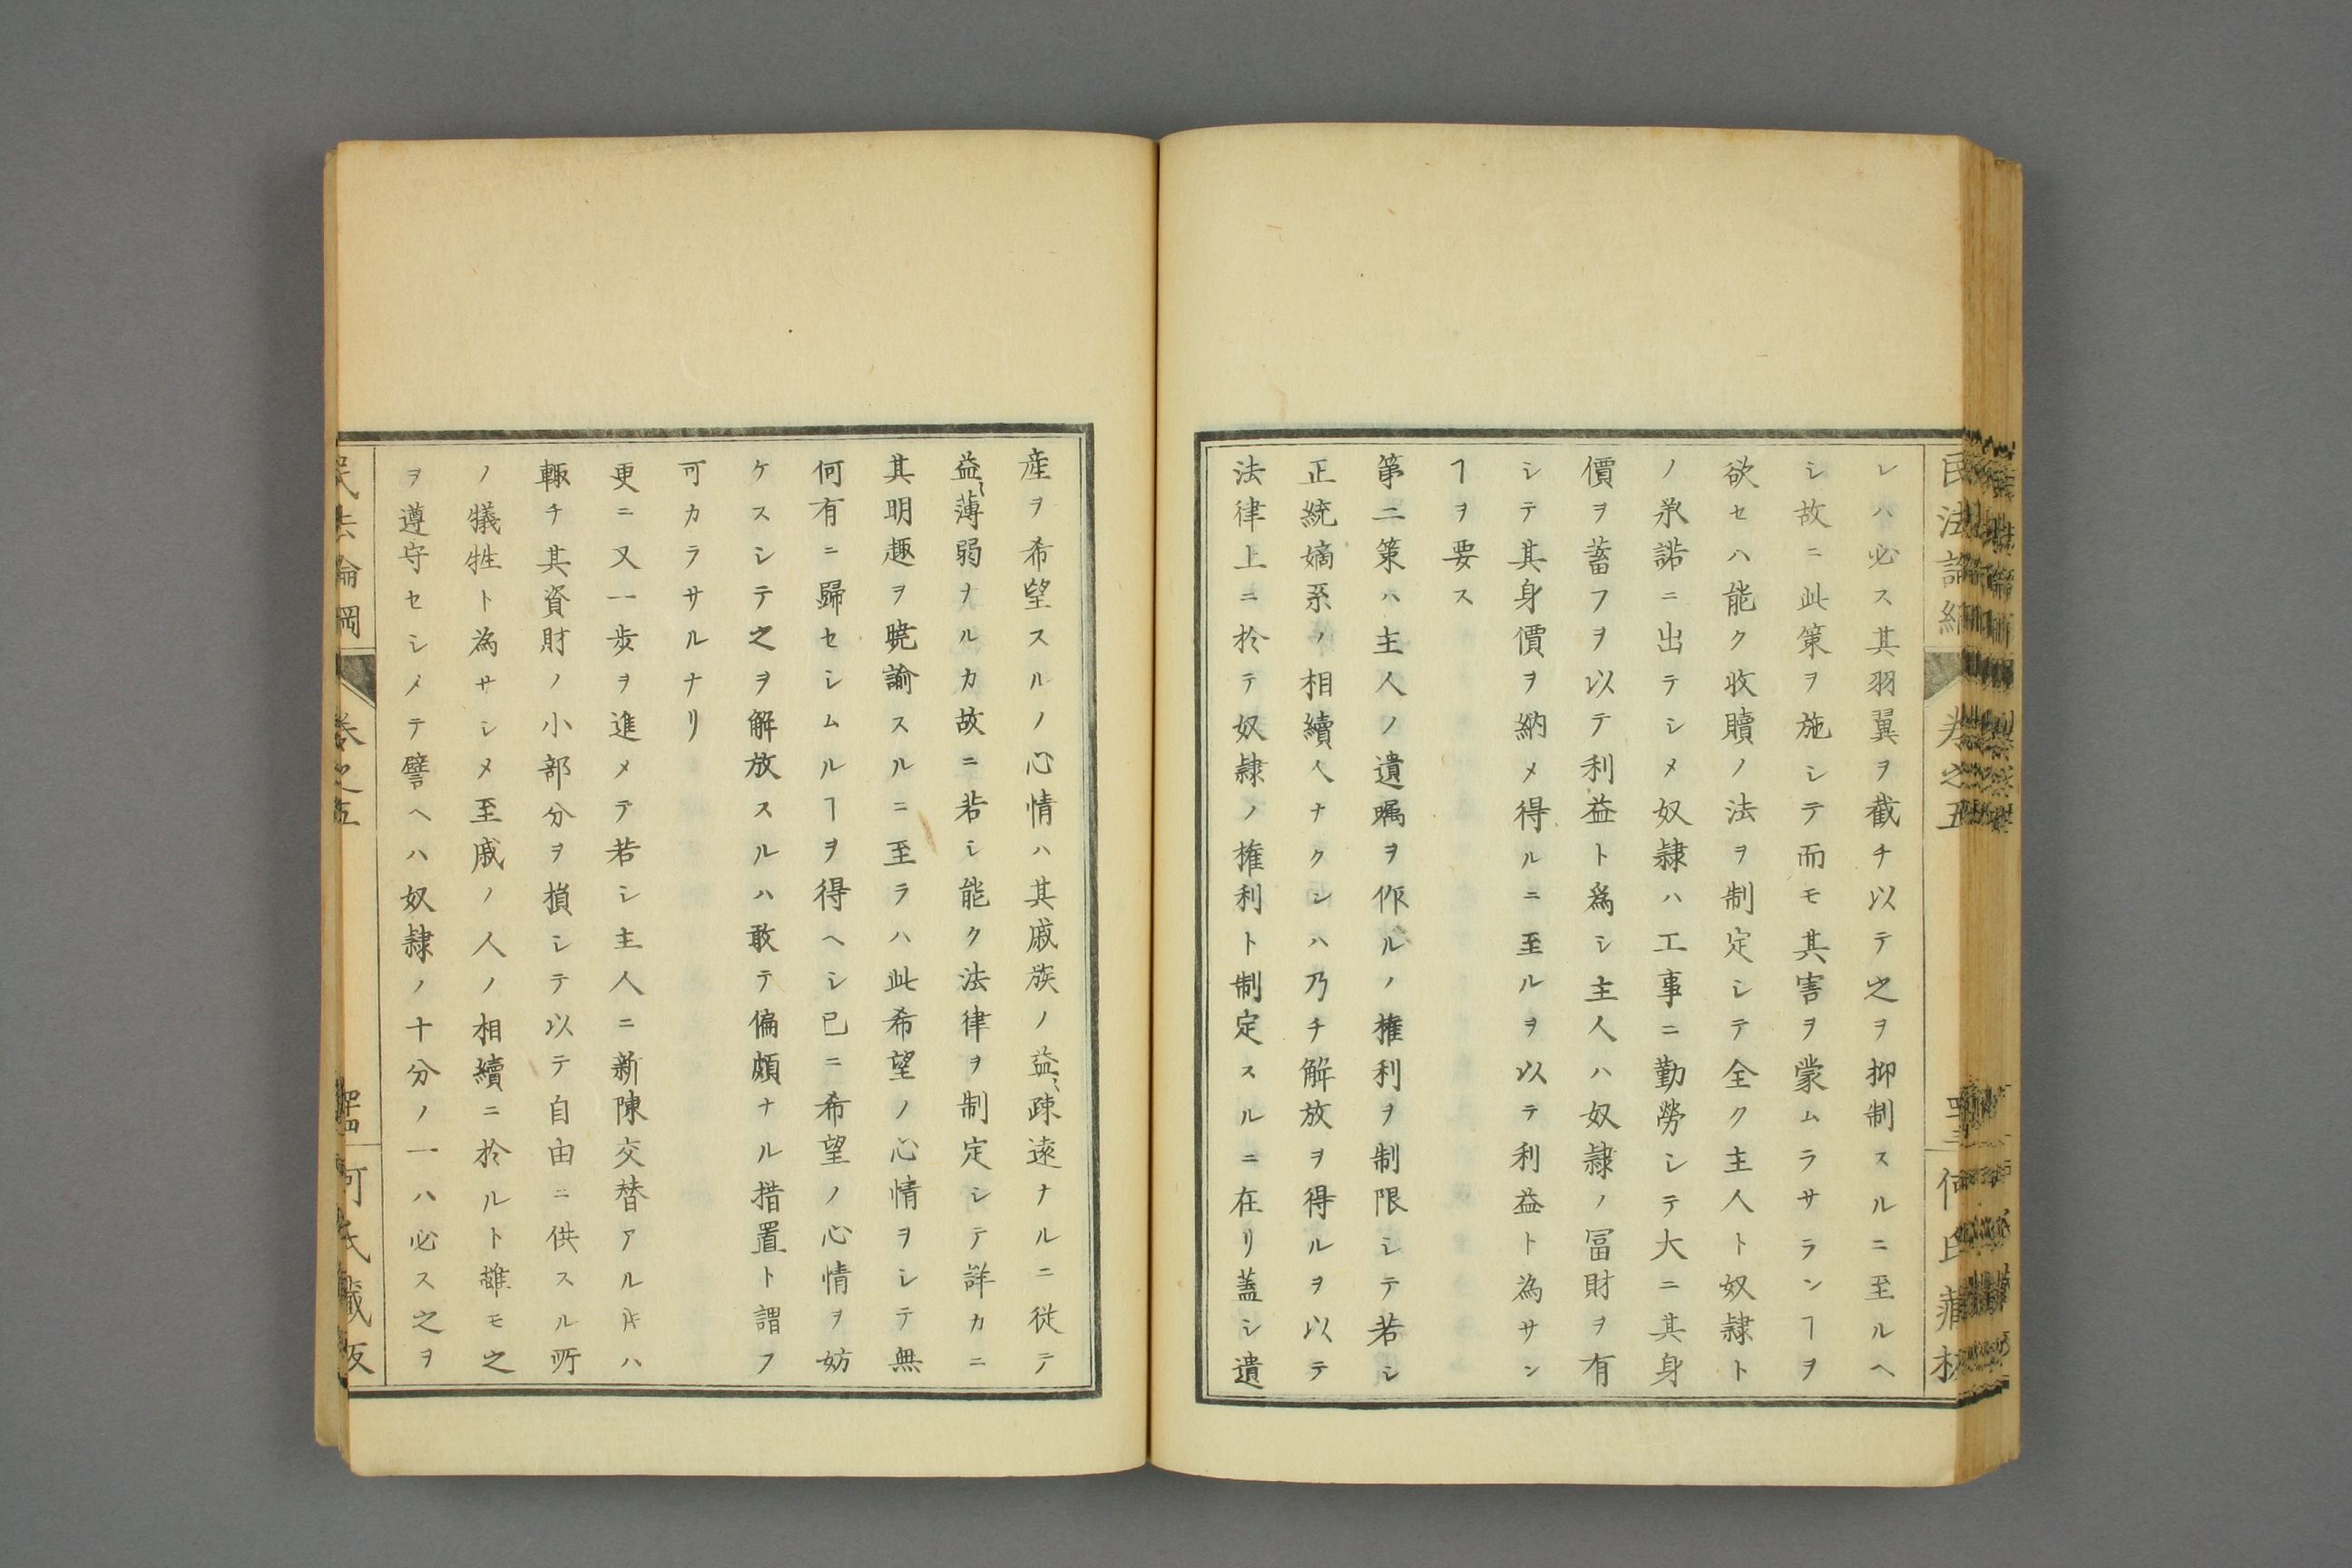 レハ必ス其羽翼ヲ截チ以テ之ヲ抑制スルニ至ルヘ
シ故ニ此策ヲ施シテ而モ其害ヲ蒙ムラサランヿヲ
欲セハ能ク收贖ノ法ヲ制定シテ全ク主人ト奴隷ト
ノ承諾ニ出テシメ奴隷ハ工事ニ勤勞シテ大ニ其身
價ヲ蓄フヲ以テ利益ト爲シ主人ハ奴隷ノ冨財ヲ有
シテ其身價ヲ納メ得ルニ至ルヲ以テ利益ト為サン
ヿヲ要ス
第二策ハ主人ノ遺嘱ヲ作ルノ權利ヲ制限シテ若シ
正統嫡系ノ相續人ナクンハ乃チ解放ヲ得ルヲ以テ
法律上ニ於テ奴隷ノ權利ト制定スルニ在リ蓋シ遺
民法論綱
卷之五
四十三
何氏藏板
産ヲ希望スルノ心情ハ其戚族ノ益〻疎遠ナルニ從テ
益〻薄弱ナルカ故ニ若シ能ク法律ヲ制定シテ詳カニ
其明趣ヲ曉諭スルニ至ラハ此希望ノ心情ヲシテ無
何有ニ歸セシムルヿヲ得ヘシ已ニ希望ノ心情ヲ妨
ケスシテ之ヲ解放スルハ敢テ偏頗ナル措置ト謂フ
可カラサルナリ
更ニ又一歩ヲ進メテ若シ主人ニ新陳交替アル𪜈ハ
輙チ其資財ノ小部分ヲ損シテ以テ自由ニ供スル所
ノ犠牲ト為サシメ至戚ノ人ノ相續ニ於ルト雖モ之
ヲ遵守セシメテ譬ヘハ奴隷ノ十分ノ一ハ必ス之ヲ
民法論綱
卷之五
四十四
何氏藏板